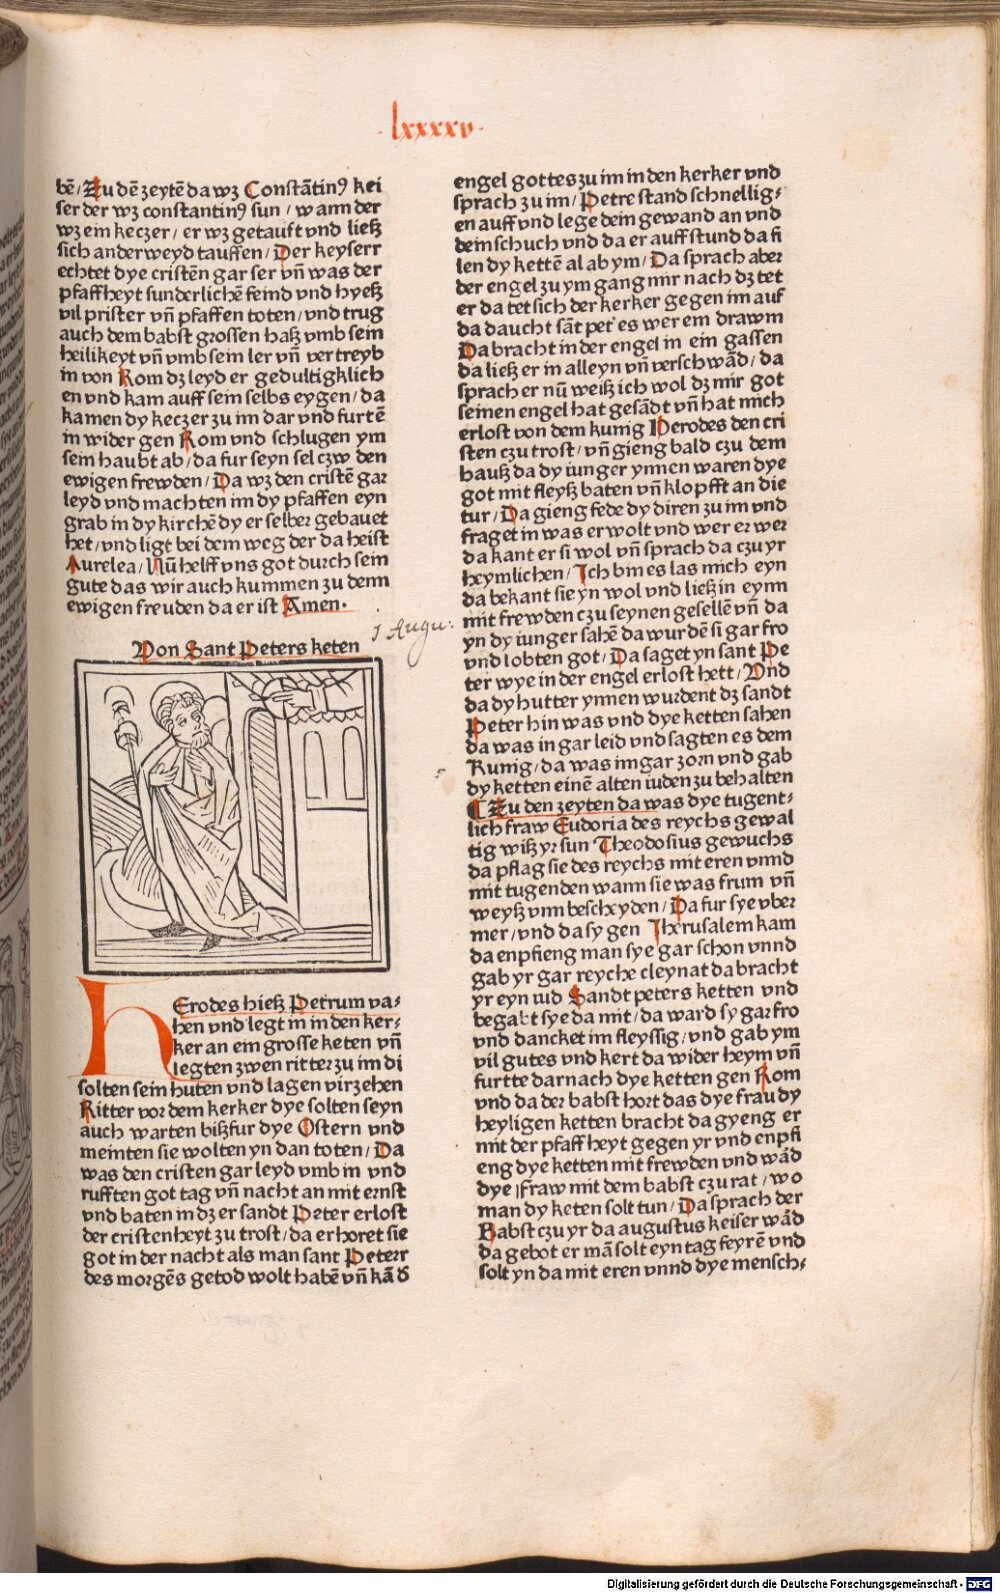 · lxxxxv ·
bē / Zu dē zeytē da wz Constātinꝰ kei
ser der wz constantinꝰ sun / wann der
wz ein keczer / er wz getauft vnd ließ
sich anderweyd tauffen / Der keyserr
echtet dye cristēn gar ser vn̄ was der
pfaffheyt sunderlichē feind vnd hyeß
vil prister vn̄ pfaffen toten / vnd trug
auch dem babst grossen haß vmb sein
heilikeyt vn̄ vmb sein ler vn̄ vertreyb
in von Rom dz leyd er gedultigklich
en vnd kam auff sein selbs eygen / da
kamen dy keczer zu im dar vnd furtē
in wider gen Rom vnd schlugen ym
sein haubt ab / da fur seyn sel czw den
ewigen frewden / Da wz den cristē gar
leyd vnd machten im dy pfaffen eyn
grab in dy kirchē dy er selber gebauet
het / vnd ligt bei dem weg der da heist
Aurelea / Nū helff vns got durch sein
gute das wir auch kummen zu denn
ewigen freuden da er ist Amen.
1 Augu:
Von Sant Peters keten
HErodes hieß Petrum va⸗
hen vnd legt in in den ker⸗
ker an ein grosse keten vn̄
legten zwen ritter zu im di
solten sein huten vnd lagen virzehen
Ritter vor dem kerker dye solten seyn
auch warten biß fur dye Ostern vnd
meinten sie wolten yn dan toten / Da
was den cristen gar leyd vmb in vnd
rufften got tag vn̄ nacht an mit ernst
vnd baten in dz er sandt Peter erlost
der cristenheyt zu trost / da erhoret sie
got in der nacht als man sant Peterr
des morgēs getod wolt habē vn̄ kā d̄
engel gottes zu im in den kerker vnd
sprach zu im / Petre stand schnellig⸗
en auff vnd lege dein gewand an vnd
dein schuch vnd da er auff stund da fi
len dy kettē al ab ym / Da sprach aber
der engel zu ym gang mir nach dz tet
er da tet sich der kerker gegen im auf
da daucht sāt pet' es wer em drawm
Da bracht in der engel in ein gassen
da ließ er in alleyn vn̄ verschwād / da
sprach er nū weiß ich wol dz mir got
seinen engel hat gesādt vn̄ hat mich
erlost von dem kunig Herodes den cri
sten czu trost / vn̄ gieng bald czu dem
hauß da dy iunger ynnen waren dye
got mit fleyß baten vn̄ klopfft an die
tur / Da gieng fede dy diren zu im vnd
fraget in was er wolt vnd wer er wer
da kant er si wol vn̄ sprach da czu yr
heymlichen / Ich bin es las mich eyn
da bekant sie yn wol vnd ließ in eynn
mit frewden czu seynen gesellē vn̄ da
yn dy iunger sahē da wurdē si gar fro
vnd lobten got / Da saget yn sant Pe
ter wye in der engel erlost hett / Vnd
da dy hutter ynnen wurdent dz sandt
Peter hin was vnd dye ketten sahen
da was in gar leid vnd sagten es dem
Kunig / da was im gar zorn vnd gab
dy ketten einē alten iuden zu behalten
¶ Zu den zeyten da was dye tugent⸗
lich fraw Eudoria des reychs gewal
tig wiß yr sun Theodosius gewuchs
da pflag sie des reychs mit eren vnnd
mit tugenden wann sie was frum vn̄
weyß vnn bescheyden / Da fur sye vber
mer / vnd da sy gen Jherusalem kam
da enpfieng man sye gar schon vnnd
gab yr gar reyche cleynat da bracht
yr eyn iud Sandt peters ketten vnd
begabt sye da mit / da ward sy gar fro
vnd dancket im fleyssig / vnd gab ym
vil gutes vnd kert da wider heym vn̄
furtte darnach dye ketten gen Rom
vnd da der babst hort das dye frau dy
heyligen ketten bracht da gyeng er
mit der pfaffheyt gegen yr vnd enpfi
eng dye ketten mit frewden vnd wād
dye fraw mit dem babst czu rat / wo
man dy keten solt tun / Da sprach der
Babst czu yr da augustus keiser wād
da gebot er mā solt eyn tag feyrē vnd
solt yn da mit eren vnnd dye mensch⸗
Digitalisierung gefördert durch die Deutsche Forschungsgemeinschaft - DFG